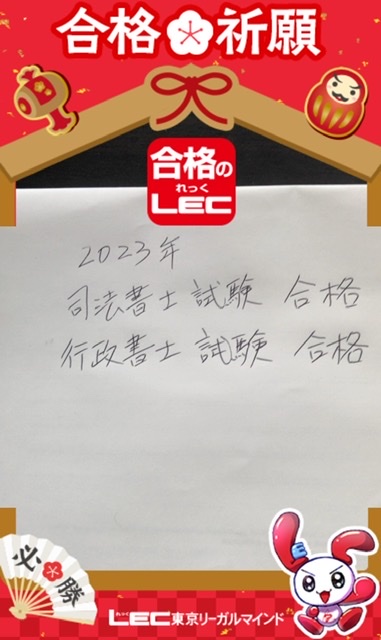 合格祈願
合格の
れっく
LEC
2023年
司法書士試験 合格
行政書士 試験 合格
必勝
れっく
LEC東京リーガルマインド